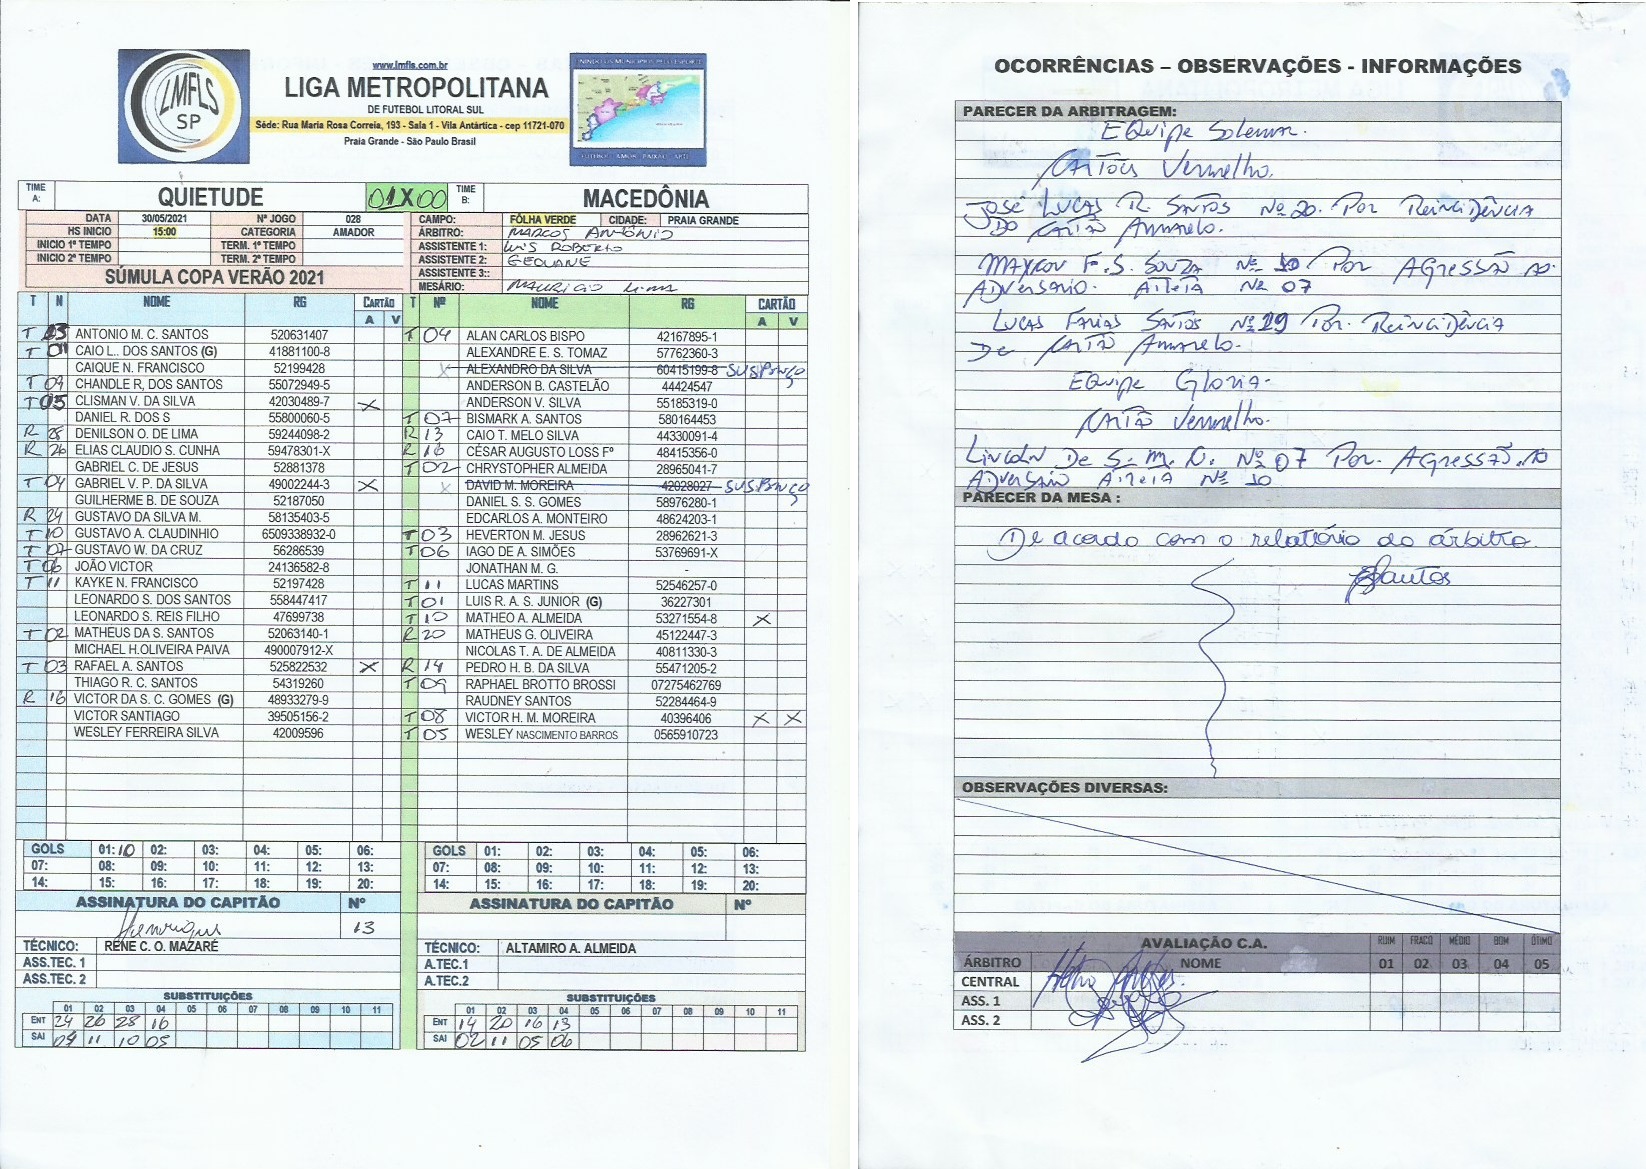 www.lmfls.com.br
LIGA METROPOLITANA
DE FUTEBOL LITORAL SUL
Séde: Rua Maria Rosa Correia, 193 - Sala 1 - Vila Antártica - cep 11721-070
Praia Grande - São Paulo Brasil
LMFLS
SP
TIME A: QUIETUDE 01X00 TIME B: MACEDÔNIA
DATA 30/05/2021 Nº JOGO 028 CAMPO: FÔLHA VERDE CIDADE: PRAIA GRANDE
HS INICIO 15:00 CATEGORIA AMADOR ÁRBITRO: MARCOS ANTÔNIO
INICIO 1º TEMPO TERM. 1º TEMPO ASSISTENTE 1: LUIS ROBERTO
INICIO 2º TEMPO TERM. 2º TEMPO ASSISTENTE 2: GEOVANE
SÚMULA COPA VERÃO 2021 ASSISTENTE 3::
MESÁRIO: MAURICIO LIMA
T N NOME RG CARTÃO A V T Nº NOME RG CARTÃO A V
T ANTONIO M. C. SANTOS 520631407 T 04 ALAN CARLOS BISPO 42167895-1
T 01 CAIO L.. DOS SANTOS (G) 41881100-8 ALEXANDRE E. S. TOMAZ 57762360-3
CAIQUE N. FRANCISCO 52199428 X ALEXANDRO DA SILVA 60415199-8 SUSPENÇO
T 09 CHANDLE R, DOS SANTOS 55072949-5 ANDERSON B. CASTELÃO 44424547
T 05 CLISMAN V. DA SILVA 42030489-7 X ANDERSON V. SILVA 55185319-0
DANIEL R. DOS S 55800060-5 T 07 BISMARK A. SANTOS 580164453
R 28 DENILSON O. DE LIMA 59244098-2 R 13 CAIO T. MELO SILVA 44330091-4
R 26 ELIAS CLAUDIO S. CUNHA 59478301-X R 16 CÉSAR AUGUSTO LOSS Fº 48415356-0
GABRIEL C. DE JESUS 52881378 T 02 CHRYSTOPHER ALMEIDA 28965041-7
T 04 GABRIEL V. P. DA SILVA 49002244-3 X X DAVID M. MOREIRA 42028027 SUSPENÇO
GUILHERME B. DE SOUZA 52187050 DANIEL S. S. GOMES 58976280-1
R 24 GUSTAVO DA SILVA M. 58135403-5 EDCARLOS A. MONTEIRO 48624203-1
T 10 GUSTAVO A. CLAUDINHIO 6509338932-0 T 03 HEVERTON M. JESUS 28962621-3
T 07 GUSTAVO W. DA CRUZ 56286539 T 06 IAGO DE A. SIMÕES 53769691-X
T 06 JOÃO VICTOR 24136582-8 JONATHAN M. G. -
T 11 KAYKE N. FRANCISCO 52197428 T 11 LUCAS MARTINS 52546257-0
LEONARDO S. DOS SANTOS 558447417 T 01 LUIS R. A. S. JUNIOR (G) 36227301
LEONARDO S. REIS FILHO 47699738 T 10 MATHEO A. ALMEIDA 53271554-8 X
T 02 MATHEUS DA S. SANTOS 52063140-1 R 20 MATHEUS G. OLIVEIRA 45122447-3
MICHAEL H.OLIVEIRA PAIVA 490007912-X NICOLAS T. A. DE ALMEIDA 40811330-3
T 03 RAFAEL A. SANTOS 525822532 X R 14 PEDRO H. B. DA SILVA 55471205-2
THIAGO R. C. SANTOS 54319260 T 09 RAPHAEL BROTTO BROSSI 07275462769
R 16 VICTOR DA S. C. GOMES (G) 48933279-9 RAUDNEY SANTOS 52284464-9
VICTOR SANTIAGO 39505156-2 T 08 VICTOR H. M. MOREIRA 40396406 X X
WESLEY FERREIRA SILVA 42009596 T 05 WESLEY NASCIMENTO BARROS 0565910723
GOLS 01: 10 02: 03: 04: 05: 06: GOLS 01: 02: 03: 04: 05: 06:
07: 08: 09: 10: 11: 12: 13: 07: 08: 09: 10: 11: 12: 13:
14: 15: 16: 17: 18: 19: 20: 14: 15: 16: 17: 18: 19: 20:
ASSINATURA DO CAPITÃO Nº ASSINATURA DO CAPITÃO Nº
Henrique 13
TÉCNICO: RENE C. O. MAZARÉ TÉCNICO: ALTAMIRO A. ALMEIDA
ASS.TEC. 1 A.TEC.1
ASS.TEC. 2 A.TEC.2
SUBSTITUIÇÕES SUBSTITUIÇÕES
01 02 03 04 05 06 07 08 09 10 11 01 02 03 04 05 06 07 08 09 10 11
ENT 24 26 28 16 ENT 14 20 16 13
SAI 09 11 10 05 SAI 02 11 05 06
OCORRÊNCIAS – OBSERVAÇÕES - INFORMAÇÕES
PARECER DA ARBITRAGEM:
EQuipe Solemar.
CARTÕES Vermelho.
JOSÉ LUCAS R. SANTOS Nº 20. POR REINCIDÊNCIA
DO CARTÃO AMARELO.
MAYKON F. S. SOUZA Nº 10 POR AGRESSÃO AO
ADVERSARIO. ATLETA Nº 07
LUCAS FARIAS SANTOS Nº 19 POR. REINCIDÊNCIA
DE CARTÃO AMARELO.
EQuipe Gloria.
CARTÃO Vermelho.
LINCOLN DE S. M. O. Nº 07 POR. AGRESSÃO AO
ADVERSARIO ATLETA Nº 10
PARECER DA MESA :
De acordo com o relatório do árbitro.
Santos
OBSERVAÇÕES DIVERSAS:
AVALIAÇÃO C.A. RUIM FRACO MÉDIO BOM ÓTIMO
ÁRBITRO NOME 01 02 03 04 05
CENTRAL
ASS. 1
ASS. 2